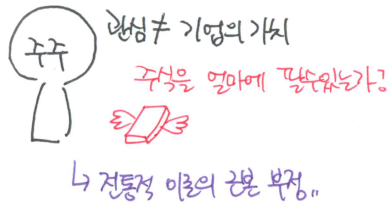 주주
관심 ≠ 기업의 가치
주식을 얼마에 팔수있는가?
↳ 전통적 이론의 근본 부정..